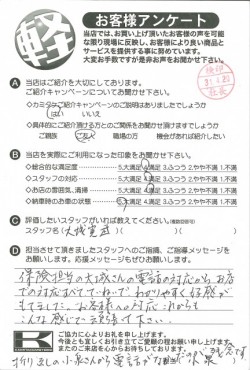 軽
お客様アンケート
当店では、お買い上げ頂いたお客様の声を可能
な限り現場に反映し、お客様により良い商品と
サービスを提供する事に努めています。
大変お手数ですが是非お声をお聞かせ下さい。
A 当店はご紹介を大切にしております。
ご紹介キャンペーンについてお聞かせ下さい。
◇カミタケご紹介キャンペーンについてご説明はありましたでしょうか
はい いいえ
◇具体的にご紹介頂ける方とのご関係をお聞かせ頂けますでしょうか
ご親族 ご友人 職場の方 機会があれば紹介したい
B 当店を実際にご利用になった印象をお聞かせ下さい。
◇総合的な満足度 5大満足 4満足 3ふつう 2やや不満 1不満
◇スタッフの対応 5大満足 4満足 3ふつう 2やや不満 1不満
◇お店の雰囲気、清掃 5大満足 4満足 3ふつう 2やや不満 1不満
◇納車時のお車の状態 5大満足 4満足 3ふつう 2やや不満 1不満
C 評価したいスタッフがいれば教えてください。
スタッフ名(大城
D 担当させて頂きましたスタッフへのご指摘、ご指導メッセージを
お願いします。応援メッセージもぜひお願いします。
保険担当の大城さんの電話の対応から、お店
での対応すべてていねいでわかりやすく好感が
もてました。お客様への対応、これからも
こんな感じで頑張って下さい。
折り返しの小泉さんから電話が
ご協力に心よりお礼を申し上げます。
今後とも宜しくお引き立てご愛顧の程お願い申し上げます。
またのご来店を心よりお待ちしております。